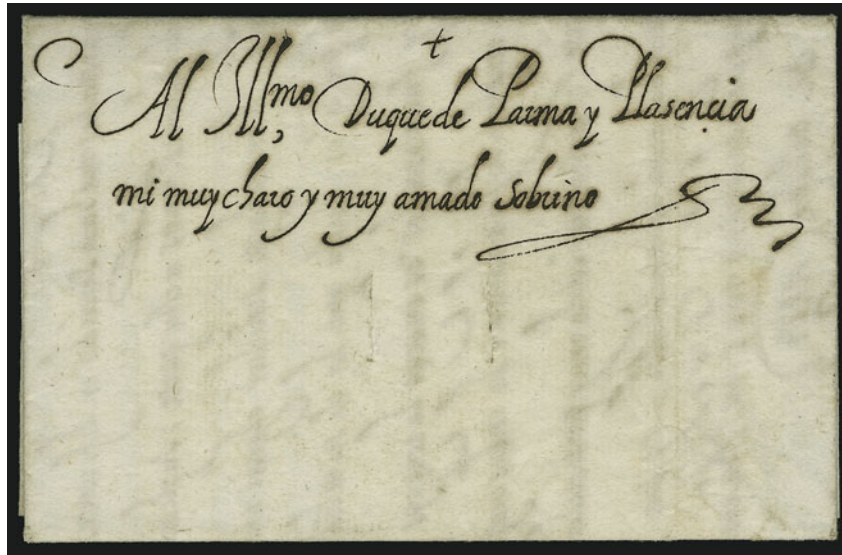 +
Al Ill,mo Duque de Parma y Plasençia
mi muy charo y muy amado sobrino